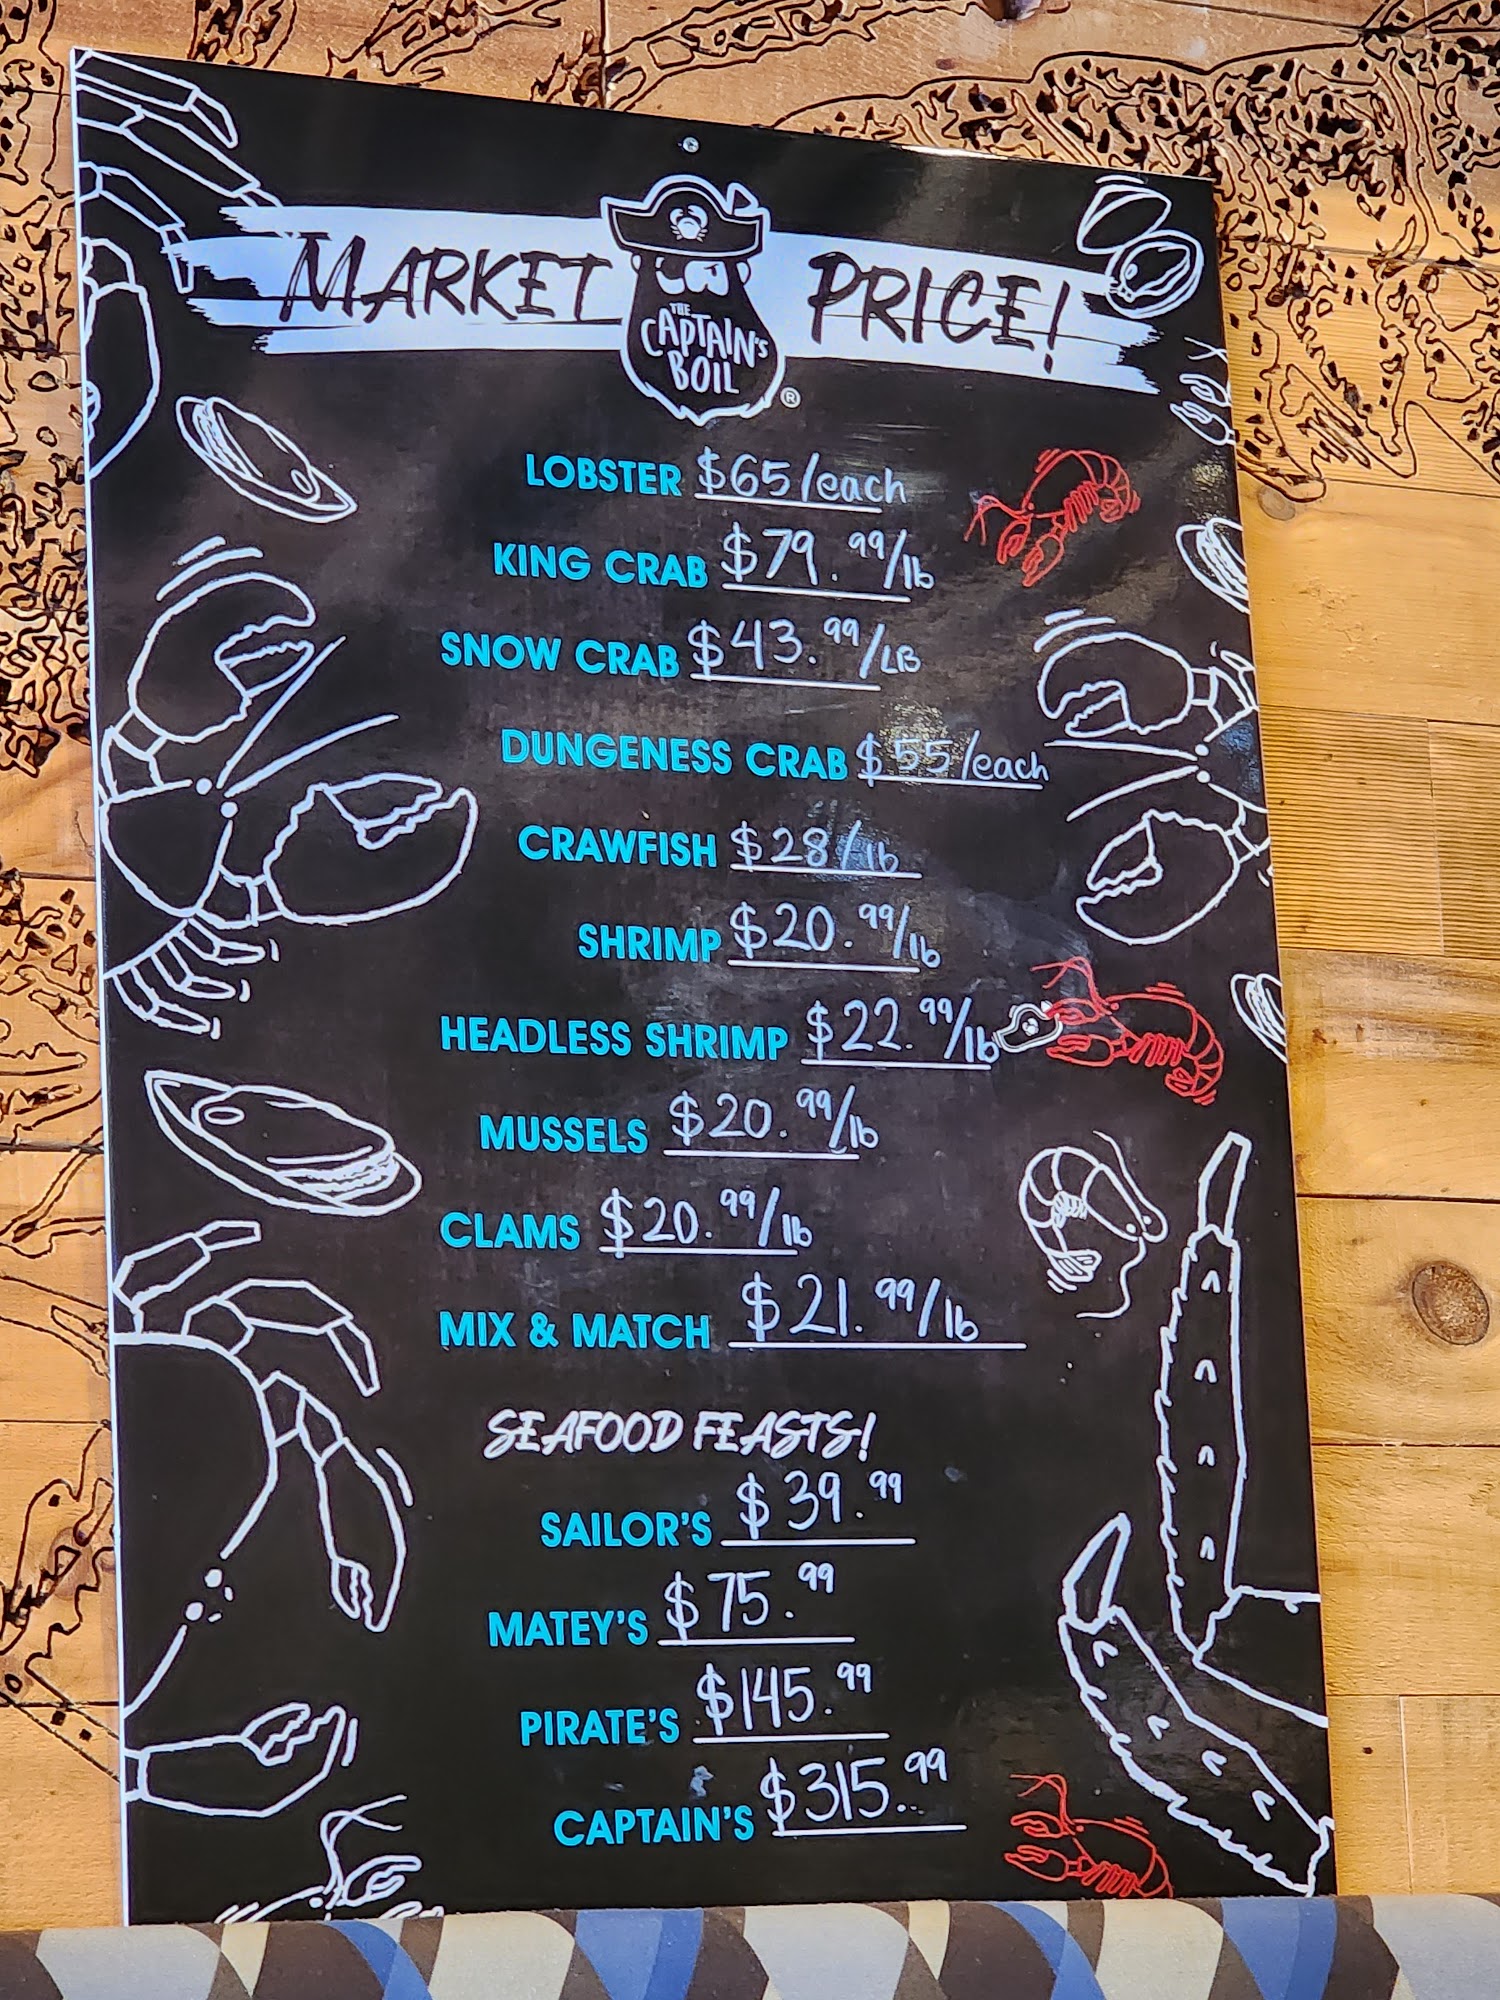 MARKET PRICE!
THE
CAPTAIN'S
BOIL
®
LOBSTER $65/each
KING CRAB $79.99/lb
SNOW CRAB $43.99/LB
DUNGENESS CRAB $55/each
CRAWFISH $28/lb
SHRIMP $20.99/lb
HEADLESS SHRIMP $22.99/lb
MUSSELS $20.99/lb
CLAMS $20.99/lb
MIX & MATCH $21.99/lb
SEAFOOD FEASTS!
SAILOR'S $39.99
MATEY'S $75.99
PIRATE'S $145.99
CAPTAIN'S $315.99